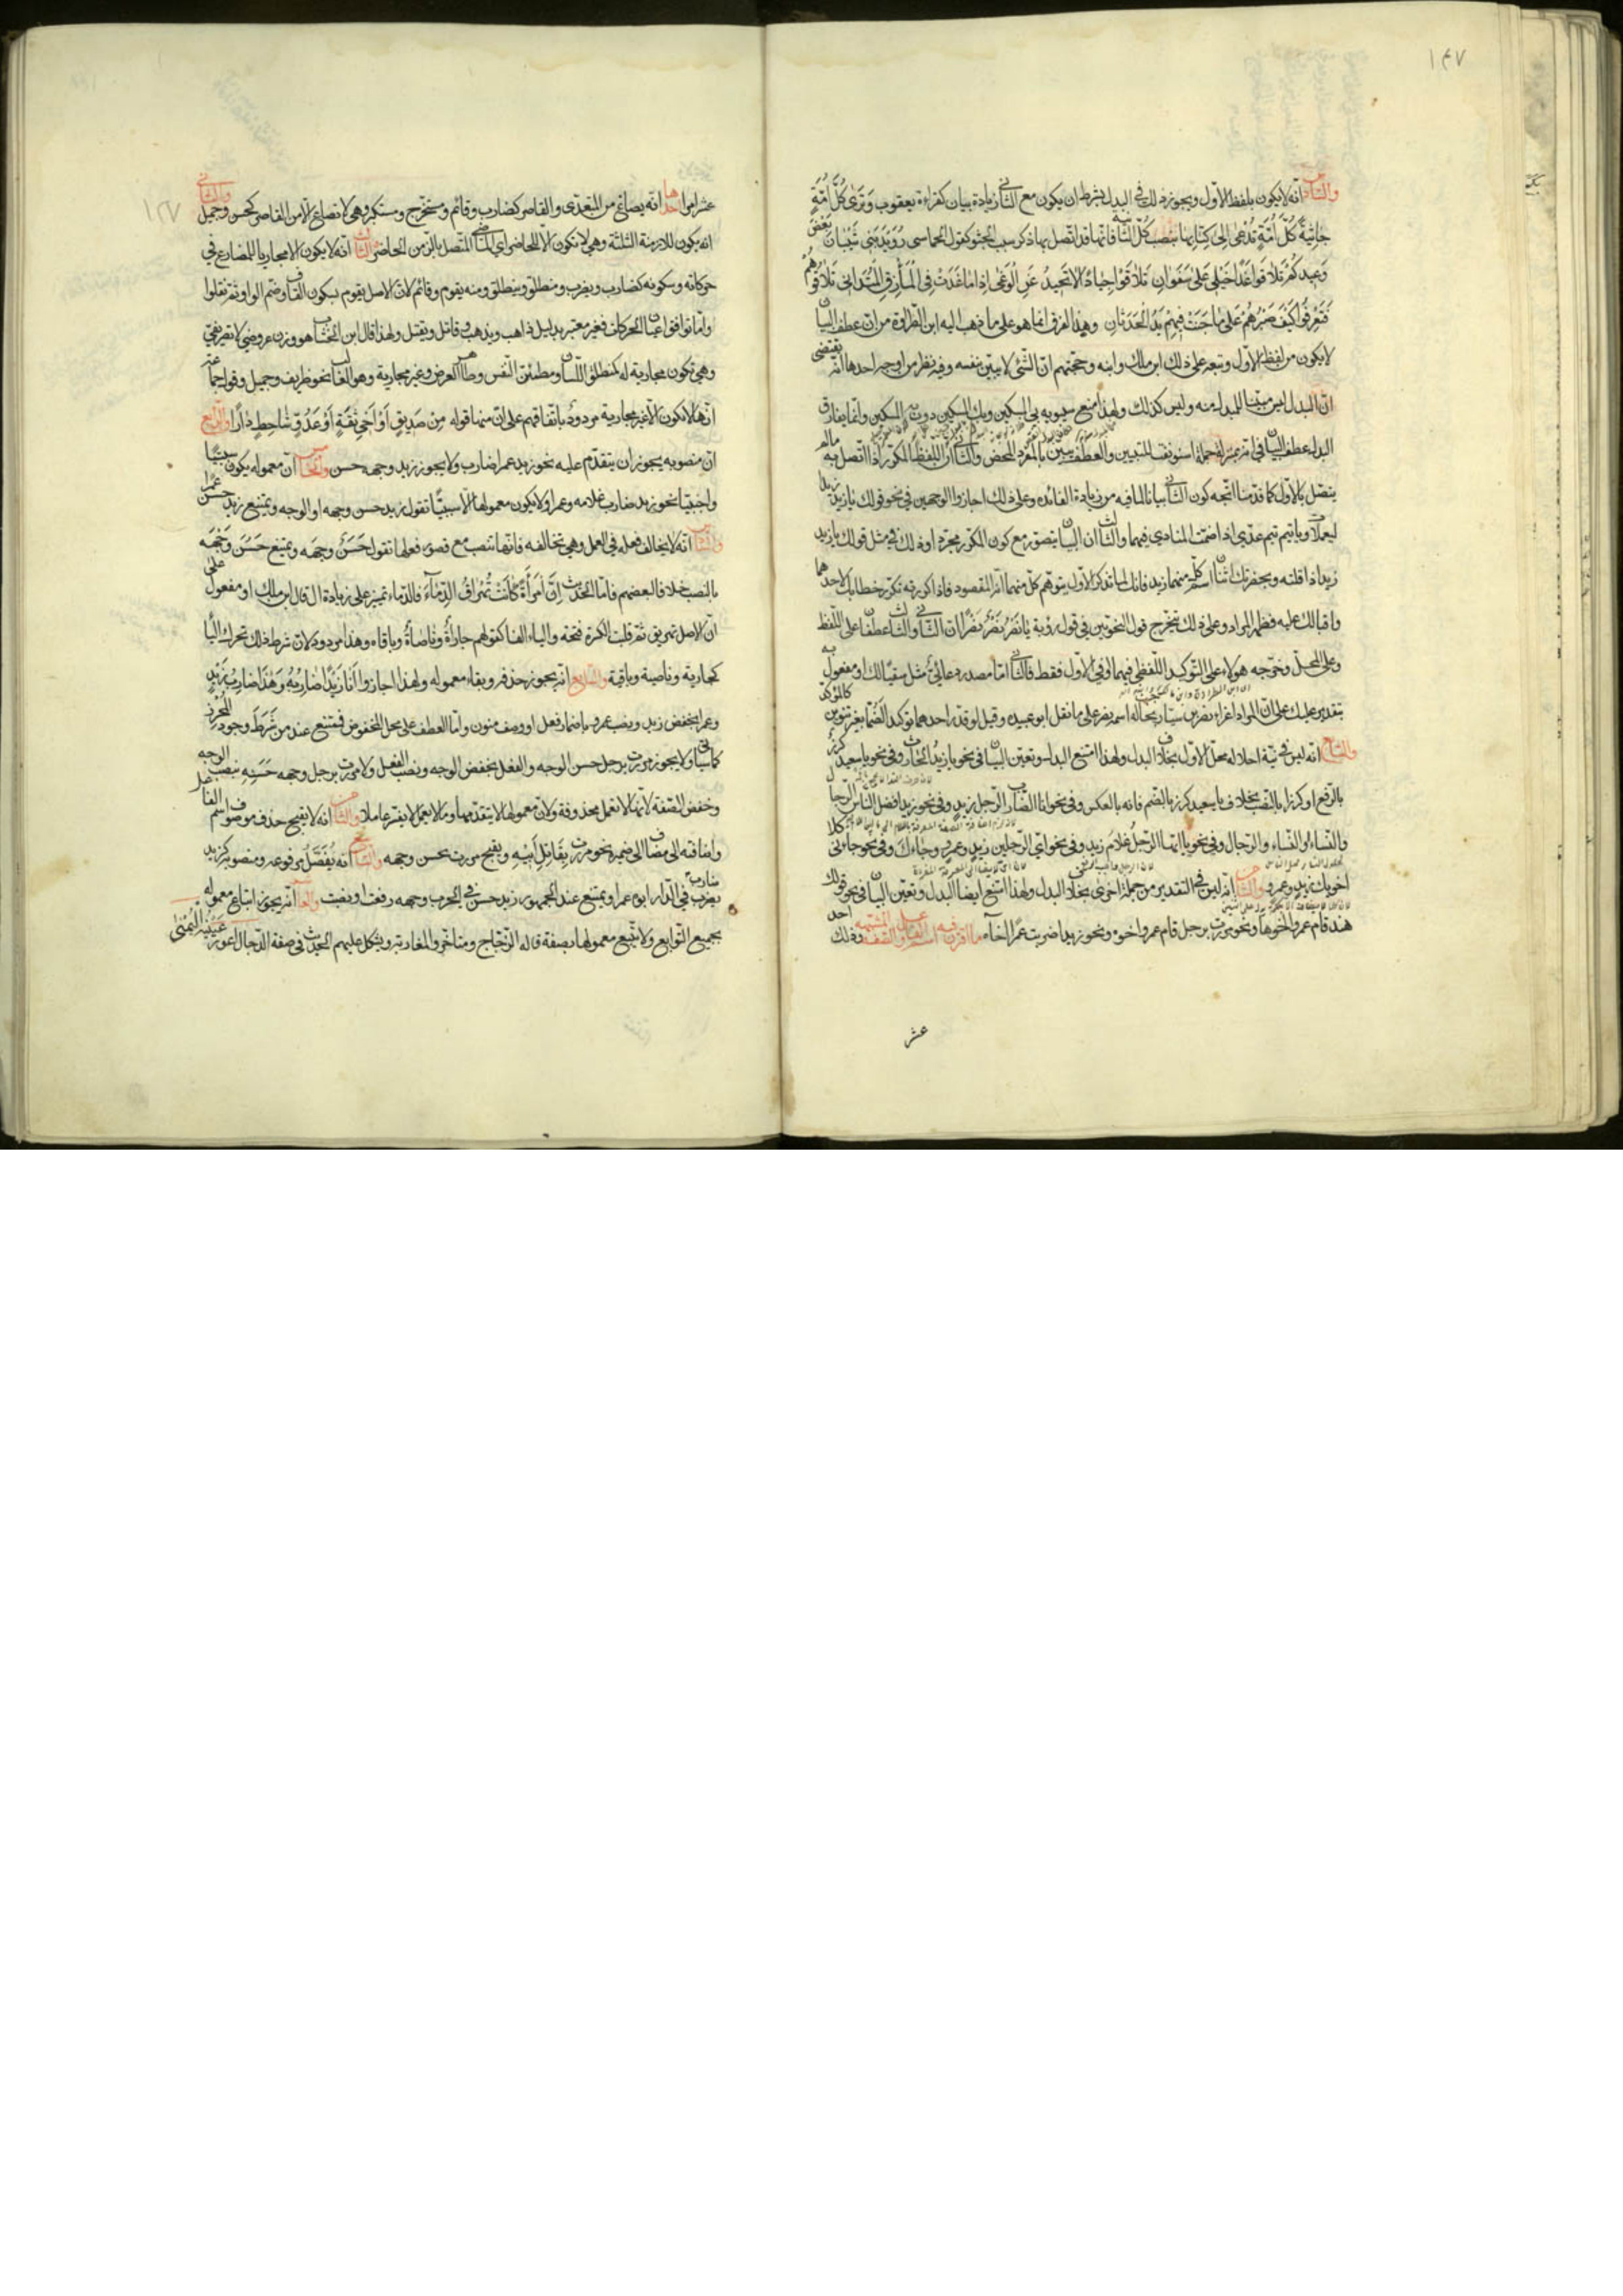 ١٤٧
والسادس انه لا يكون بلفظ الاول ويجوز ذلك في البدل بشرط ان يكون مع الثاني زيادة بيان كقراءة يعقوب وَتَرى كُلَّ اُمَّةٍ
جاثِيَةً كُلَّ اُمَّةٍ تُدْعى اِلى كِتابِها بنصب كلّ الثانية فانها قد اتصل بها ذكر سبب الجثو كقول الحماسى رُوَيْدَ بَنى شَيْبانَ بَعْضَ
وَعيدِكُمْ تُلاقوا غَداً خَيْلى عَلى سَفَوانِ تُلاقوا جِياداً لا تَحيدُ عَنِ الْوَغى اِذا ما غَدَتْ فِى الْمَأْزِقِ الْمُتَدانى تُلاقُوهُمُ
فَتَعْرِفُوا كَيْفَ صَبْرُهُمْ عَلى ما جَنَتْ فيهِمْ يَدُ الْحَدَثانِ وهذا الفرق انما هو على ما ذهب اليه ابن الطراوة من ان عطف البيان
لا يكون من لفظ الاول وتبعه على ذلك ابن مالك وابنه وحجتهم ان الشىء لا يبين نفسه وفيه نظر من اوجه احدها انه يقتضى
ان البدل ليس مبينا للمبدل منه وليس كذلك ولهذا منع سيبويه بى المسكين وبك المسكين دون به المسكين وانما يفارق
البدل عطف البيان فى انه بمنزلة جملة استونفت للتبيين والعطف تبيين بالمفرد المحض والثانى ان اللفظ المكرر اذا اتصل به ما لم
يتصل بالاول كما قدمنا اتجه كون الثانى بيانا لما فيه من زيادة الفائدة وعلى ذلك اجازوا الوجهين فى نحو قولك يا زيد زيد
اليعملات ويا تيم تيم عدى اذا ضممت المنادى فيهما والثالث ان البيان يتصور مع كون المكرر مجردا وذلك فى مثل قولك يا زيد
زيد اذا قلته وبحضرتك اثنان اسم كل منهما زيد فانك لما تذكر الاول يتوهم كل منهما انه المقصود فاذا كررته تكرر خطابك لاحدهما
واقبالك عليه فظهر المراد وعلى ذلك يتخرج قول النحويين فى قول رؤبة يا نَصْرُ نَصْرٌ نَصْراً ان الثانى والثالث عطفان على اللفظ
وعلى المحل وخرجه هؤلاء على التوكيد اللفظى فيهما او فى الاول فقط فالثانى اما مصدر دعائى مثل سقيا لك او مفعول به
بتقدير عليك على ان المراد اغراء نصر بن سيار بحاجب له اسمه نصر على ما نقل ابو عبيدة وقيل لو قدر احدهما توكيدا لضما بغير تنوين كالمؤكد
والسابع انه ليس فى نية احلاله محل الاول بخلاف البدل ولهذا امتنع البدل وتعين البيان فى نحو يا زيد الحارث وفى نحو يا سعيد كرز
بالرفع او كرزا بالنصب بخلاف يا سعيد كرز بالضم فانه بالعكس وفى نحو انا الضارب الرجل زيد وفى نحو زيد افضل الناس الرجال
والنساء والنساء والرجال وفى نحو يا ايها الرجل غلام زيد وفى نحو اى الرجلين زيد وعمرو جاءك وفى نحو جاءنى كلا
اخويك زيد وعمرو والثامن انه ليس فى التقدير من جملة اخرى بخلاف البدل ولهذا امتنع ايضا البدل وتعين البيان فى نحو قولك
هند قام عمرو اخوها ونحو مررت برجل قام عمرو اخوه ونحو زيد ضربت عمرا اخاه ما افترق فيه اسم الفاعل والصفة المشبهة وذلك احد
عشر
عشر امرا احدها انه يصاغ من المتعدى والقاصر كضارب وقائم ومستخرج ومستكبر وهى لا تصاغ الا من القاصر كحسن وجميل والثانى
انه يكون للازمنة الثلثة وهى لا تكون الا للحاضر اى الماضى المتصل بالزمن الحاضر والثالث انه لا يكون الا مجاريا للمضارع فى
حركاته وسكونه كضارب ويضرب ومنطلق وينطلق ومنه يقوم وقائم لان الاصل يقوم بسكون القاف وضم الواو ثم نقلوا
واما توافق اعيان الحركات فغير معتبر بدليل ذاهب ويذهب وقاتل ويقتل ولهذا قال ابن الخشاب هو وزن عروضى لا تصريفى
وهى تكون مجارية له كمنطلق اللسان ومطمئن النفس وطاهر العرض وغير مجارية وهو الغالب نحو ظريف وجميل وقول جماعة
انها لا تكون الا غير مجارية مردود باتفاقهم على ان منها قوله مِنْ صَديقٍ اَوْ اَخى ثِقَةٍ اَوْ عَدُوٍّ شاحِطٍ داراً والرابع
ان منصوبه يجوز ان يتقدم عليه نحو زيد عمرا ضارب ولا يجوز زيد وجهه حسن والخامس ان معموله يكون سببيا
واجنبيا نحو زيد ضارب غلامه وعمرا ولا يكون معمولها الا سببيا تقول زيد حسن وجهه او الوجه ويمتنع زيد حسن عمرا
والسادس انه لا يخالف فعله فى العمل وهى تخالفه فانها تنصب مع قصور فعلها تقول حَسَنٌ وجهَه ويمتنع حَسُنَ وَجْهَه
بالنصب خلافا لبعضهم فاما الحديث اِنَّ امْرَأَةً كانَتْ تُهَراقُ الدِّماءَ فالدماء تمييز على زيادة ال قال ابن مالك او مفعول على
ان الاصل تهريق ثم قلبت الكسرة فتحة والياء الفا كقولهم جاراةٌ وناصاةٌ وباقاه وهذا مردود لان شرط ذلك تحرك الياء
كجارية وناصية وباقية والسابع انه يجوز حذفه وبقاء معموله ولهذا اجازوا اَنَا زَيْداً ضارِبُهُ وَهذا ضارِبُ زَيْدٍ
وعمرا بخفض زيد ونصب عمرو باضمار فعل او وصف منون واما العطف على محل المخفوض فممتنع عند من شَرَطَ وجود المحرز
كما سياتى ولا يجوز مررت برجل حسن الوجه والفعل بخفض الوجه ونصب الفعل ولا مررت برجل وجهه حَسَنِه بنصب الوجه
وخفض الصفة لانها لا تعمل محذوفة ولان معمولها لا يتقدمها وما لا يعمل لا يفسر عاملا والثامن انه لا يقبح حذف موصوف اسم الفاعل
واضافته الى مضاف الى ضميره نحو مررت بِقاتِلِ اَبيهِ ويقبح مررت بحسن وجهه والتاسع انه يُفْصَلُ مرفوعه ومنصوبه كزيد ضارب
فى الدار ابوه عمرا ويمتنع عند الجمهور زيد حسن فى الحرب وجهه رفعت او نصبت والعاشر انه يجوز اتباع معموله
بجميع التوابع ولا يتبع معمولها بصفة قاله الزجاج ومتاخرو المغاربة ويشكل عليهم الحديث فى صفة الدجال اعور عَيْنِهِ الْيُمْنى